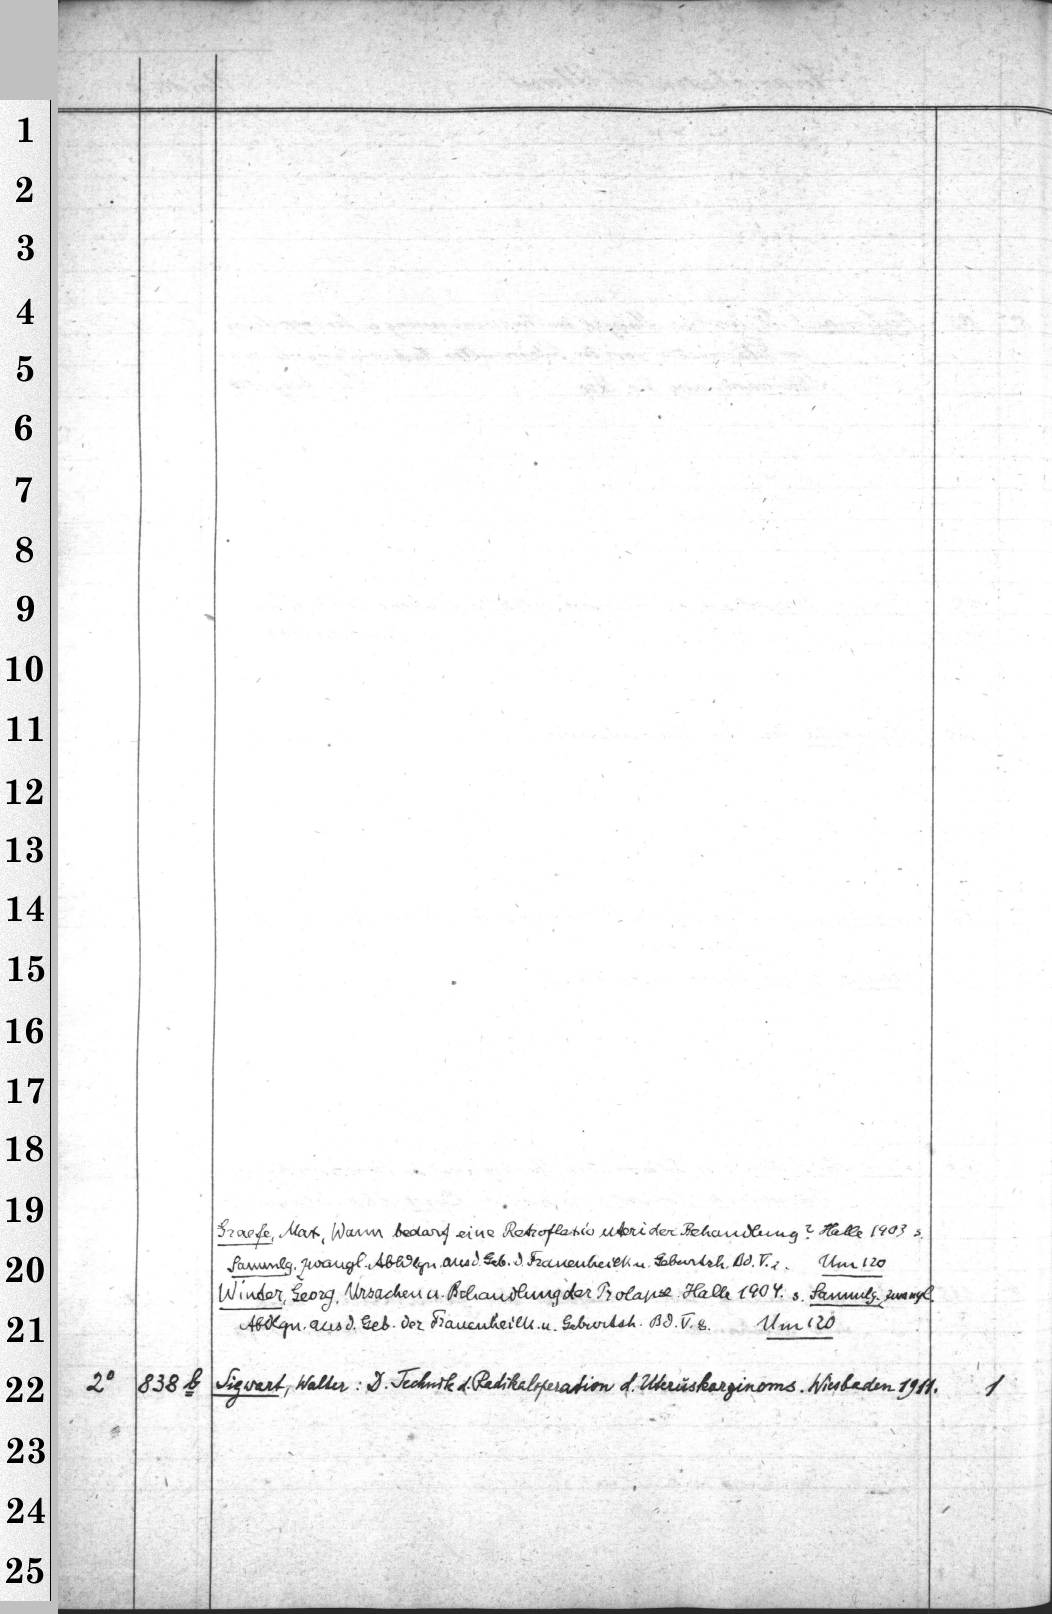 1
2
3
4
5
6
7
8
9
10
11
12
13
14
15
16
17
18
19
Graefe, Max, Wann bedarf eine Retroflexio uteri der Behandlung? Halle 1903 s.
20
Sammlg. zwangl. Abhdlgn. aus d. Geb. d. Frauenheilk. u. Geburtsh. Bd. V. Um 120
Winter, Georg, Ursachen u. Behandlung der Prolapse. Halle 1904. s. Sammlg. zwangl.
21
Abhdlgn. aus d. Geb. der Frauenheilk. u. Geburtsh. Bd. V. Um 120
22 2° 838 b Sigwart, Walter: D. Technik d. Radikaloperation d. Uteruskarzinoms. Wiesbaden 1911. 1
23
24
25